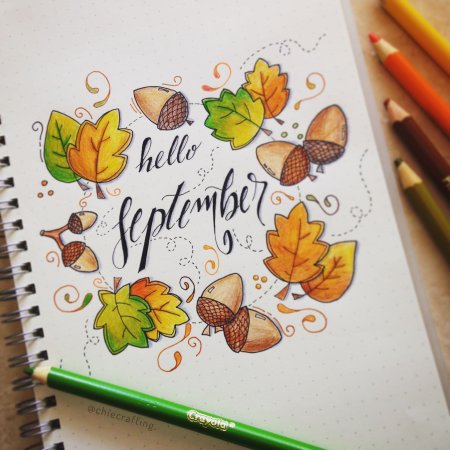 hello
September
@chiecrafting.
Crayola